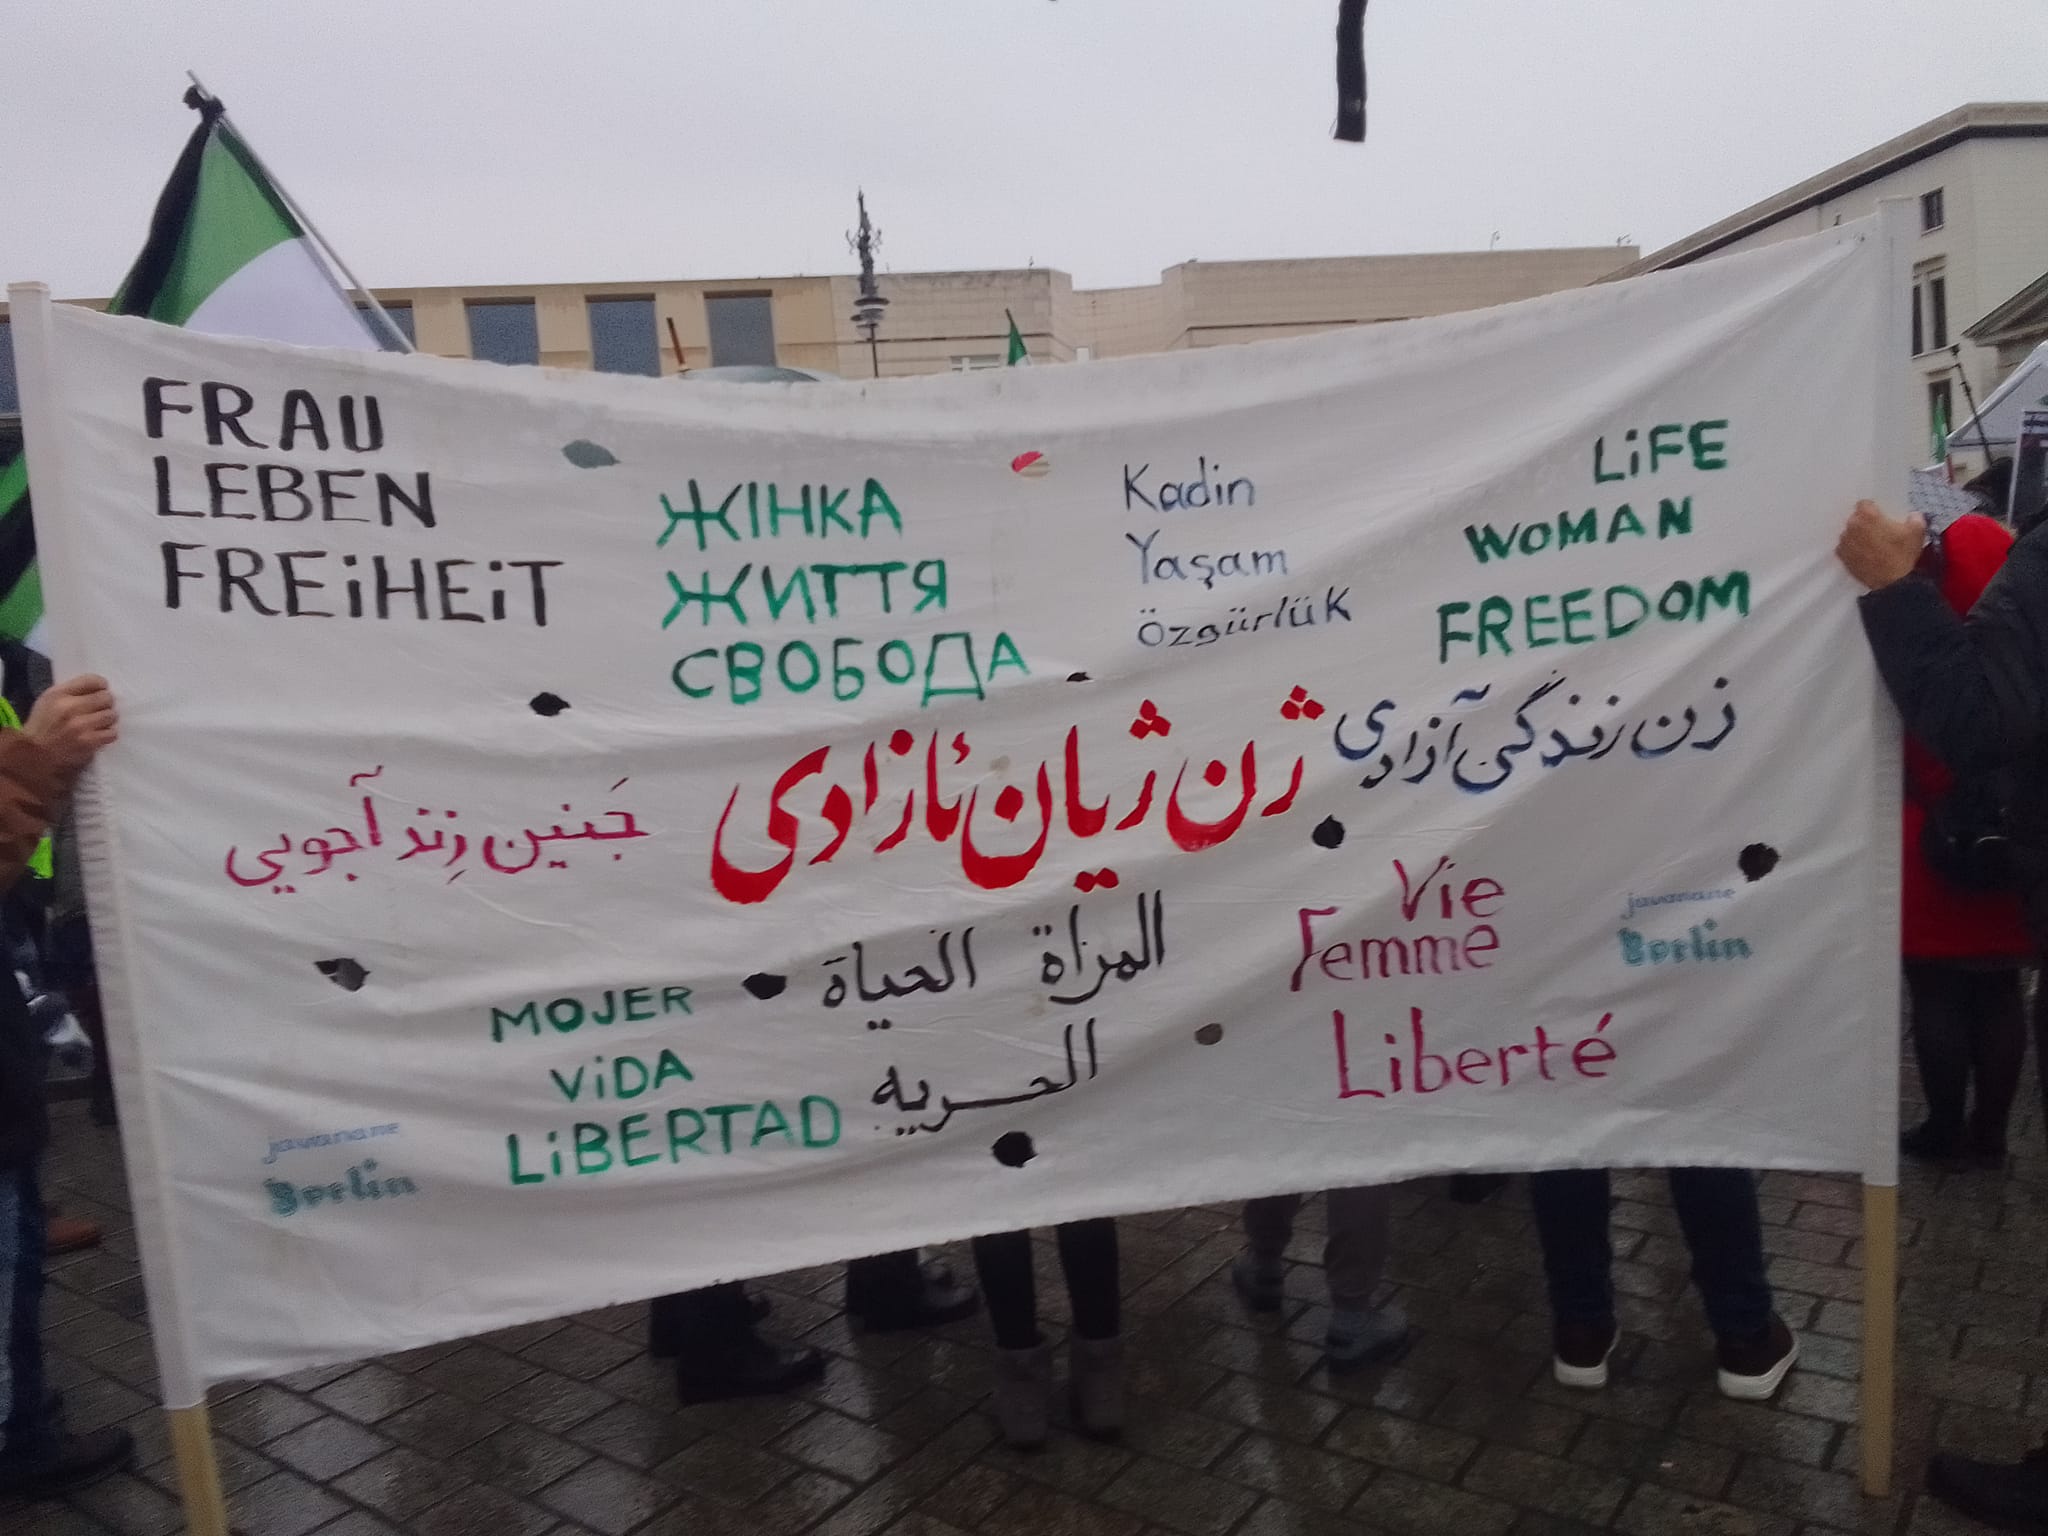 FRAU
LEBEN
FREiHEiT
ЖІНКА
ЖИТТЯ
СВОБОДА
Kadin
Yaşam
Özgürlük
LiFE
WOMAN
FREEDOM
زن زندگی آزادی
ژن ژیان ئازادی
جَنین زِند آجویی
المرأة الحياة
الحرية
Vie
Femme
Liberté
MOJER
ViDA
LiBERTAD
javanane
Berlin
javanane
Berlin